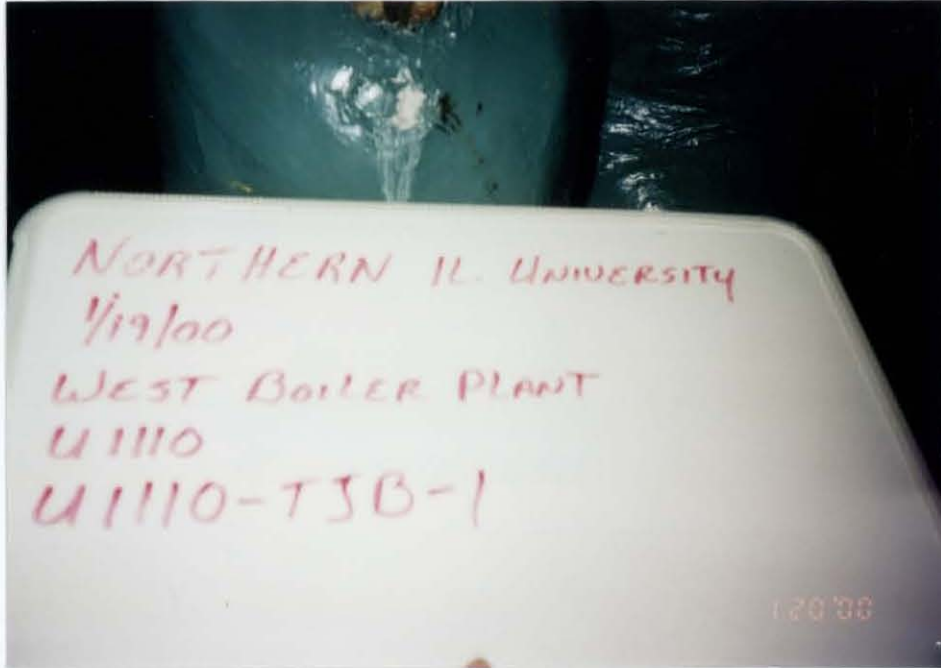 NORTHERN IL. UNIVERSITY
1/19/00
WEST BOILER PLANT
U1110
U1110-TJB-1
1 20 '00